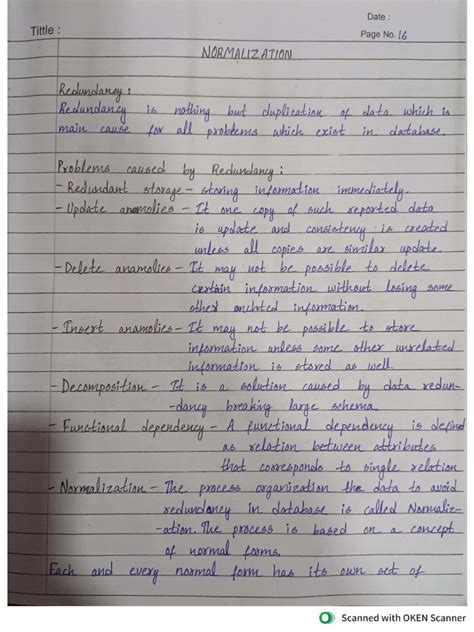 Date :
Tittle :
Page No. 16
NORMALIZATION
Redundancy :
Redundancy is nothing but duplication of data which is
main cause for all problems which exist in database.
Problems caused by Redundancy :
- Redundant storage - storing information immediately.
- Update anomolies - It one copy of such reported data
is update and consistency is created
unless all copies are similar update.
- Delete anamolies - It may not be possible to delete
certain information without losing some
other information.
- Insert anamolies - It may not be possible to store
information unless some other unrelated
information is stored as well.
- Decomposition - It is a solution caused by data redun-
-dancy breaking large schema.
- Functional dependency - A functional dependency is defined
as relation between attributes
that corresponds to single relation
- Normalization - The process organization the data to avoid
redundancy in database is called Normaliz-
-ation. The process is based on a concept
of normal forms.
Each and every normal form has its own set of
Scanned with OKEN Scanner